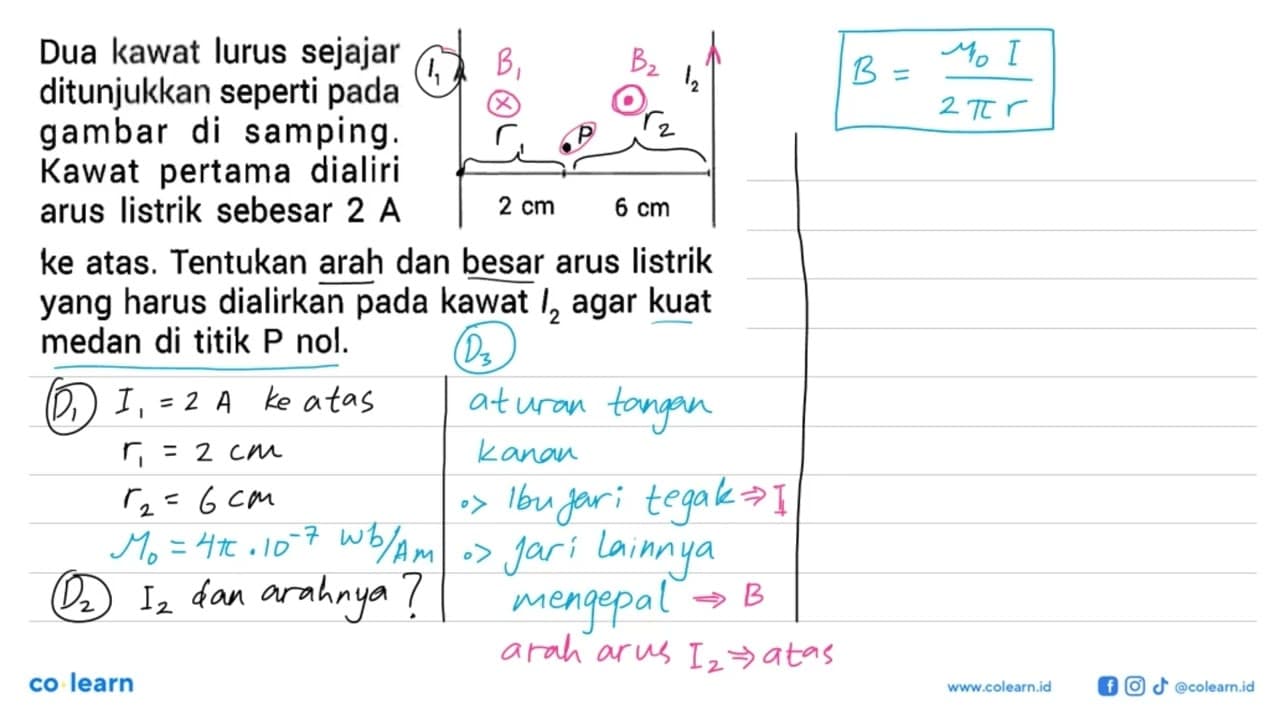 Dua kawat lurus sejajar
ditunjukkan seperti pada
gambar di samping.
Kawat pertama dialiri
arus listrik sebesar 2 A
ke atas. Tentukan arah dan besar arus listrik
yang harus dialirkan pada kawat I₂ agar kuat
medan di titik P nol.
I₁
B₁
B₂
I₂
r₁
P
r₂
2 cm
6 cm
B = μ₀ I / 2 π r
D₁ I₁ = 2 A ke atas
r₁ = 2 cm
r₂ = 6 cm
μ₀ = 4π . 10⁻⁷ Wb/Am
D₂ I₂ dan arahnya ?
D₃
aturan tangan
kanan
•> Ibu jari tegak ⇒ I
•> Jari lainnya
mengepal ⇒ B
arah arus I₂ ⇒ atas
co learn
www.colearn.id
@colearn.id